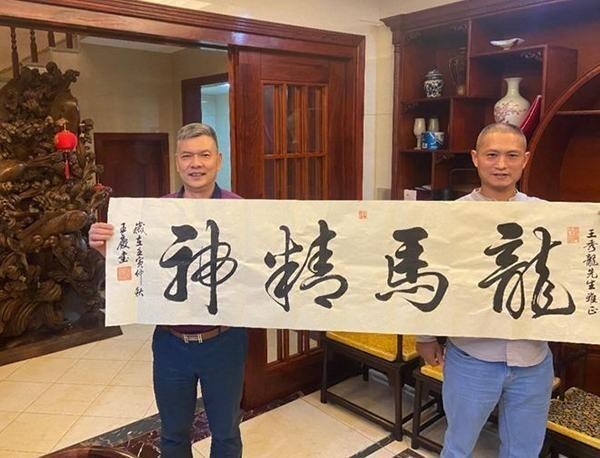 王秀龍先生雅正
龍馬精神
歲在壬寅仲秋